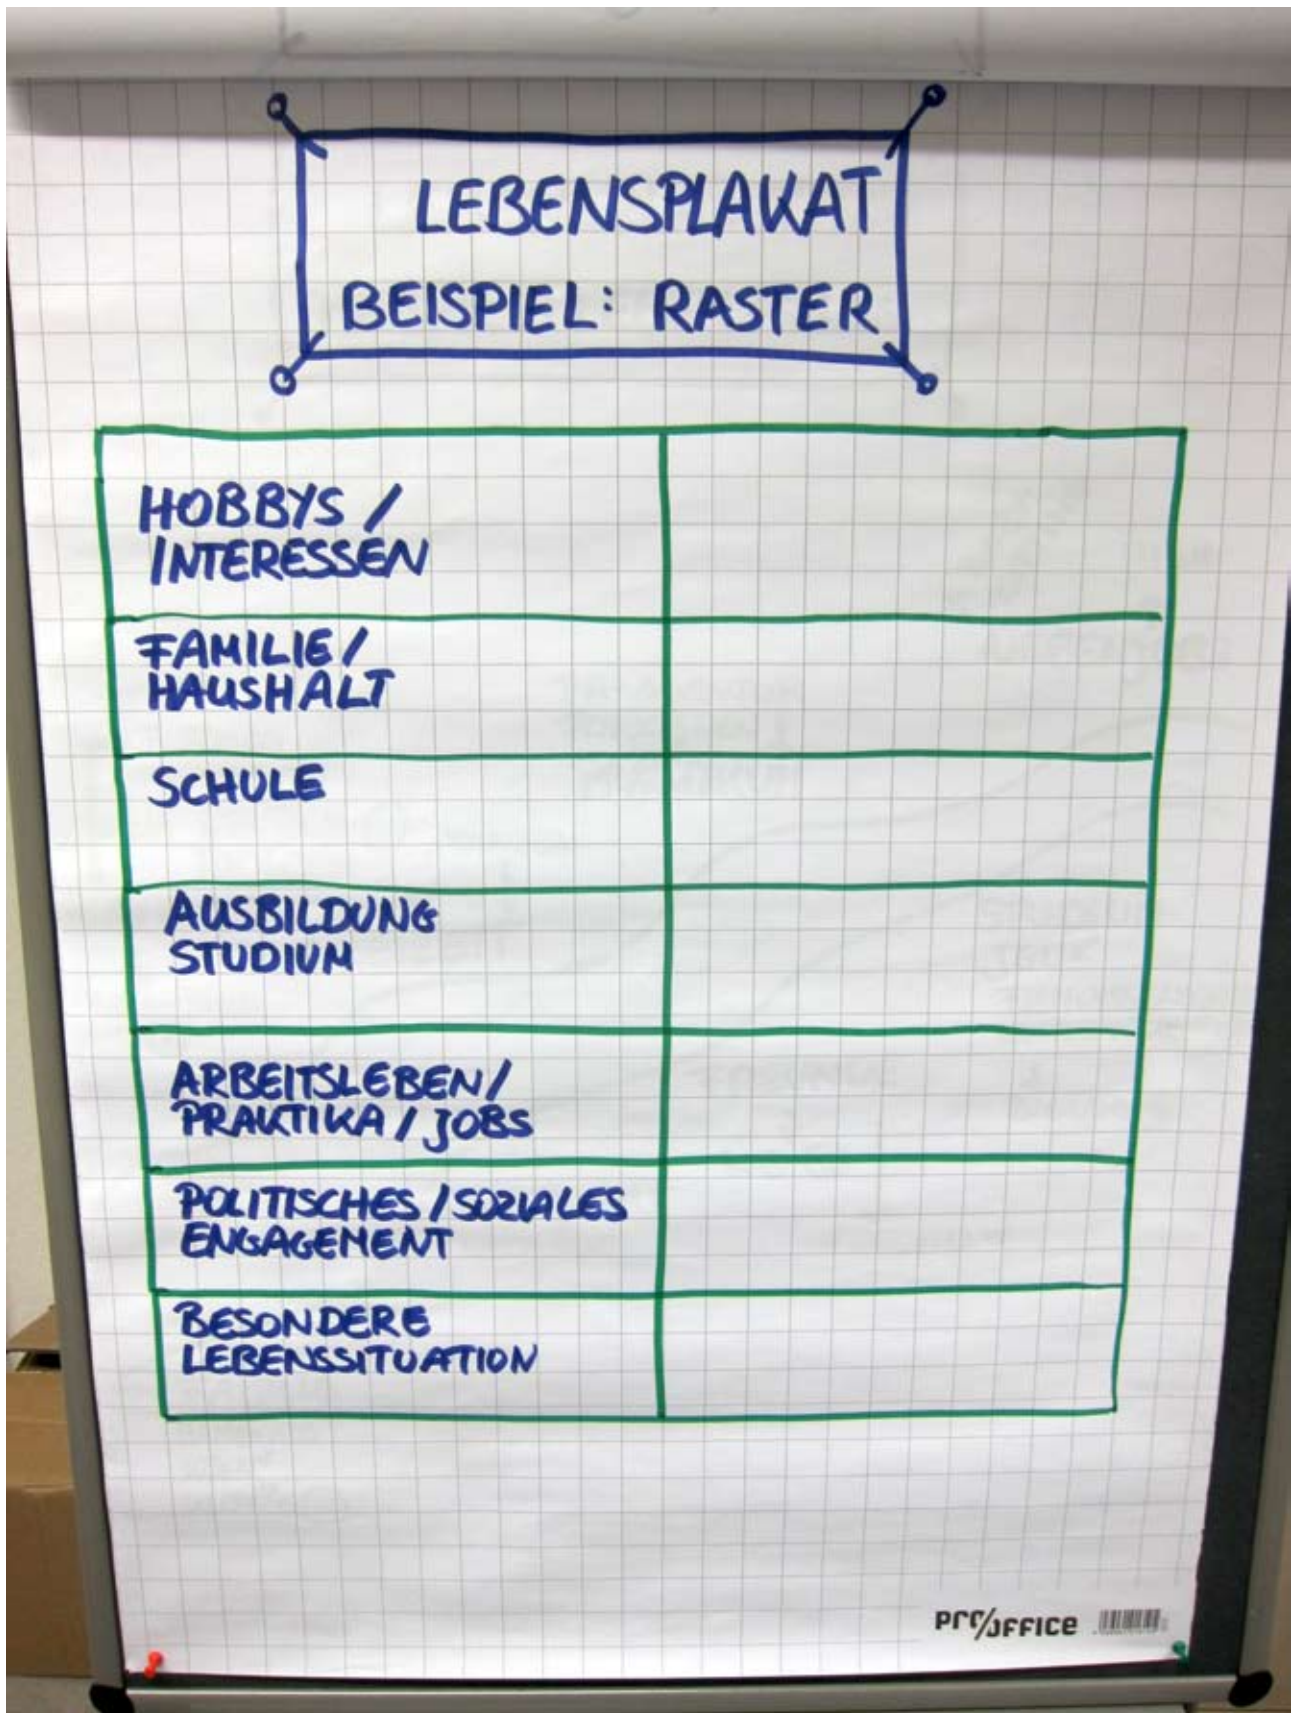 LEBENSPLAKAT
BEISPIEL: RASTER
HOBBYS /
INTERESSEN
FAMILIE /
HAUSHALT
SCHULE
AUSBILDUNG
STUDIUM
ARBEITSLEBEN /
PRAKTIKA / JOBS
POLITISCHES / SOZIALES
ENGAGEMENT
BESONDERE
LEBENSSITUATION
PRO/OFFICE